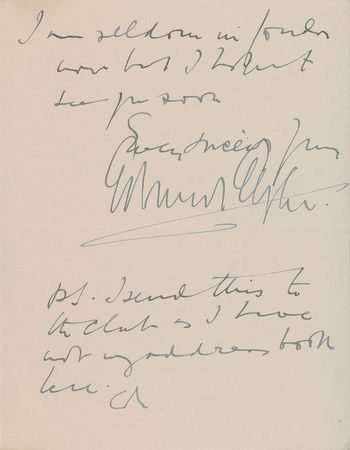 I am seldom in London
now but I hope to
see you soon
Very sincerely yours
P.S. I send this to
the club as I have
not my address book
here.